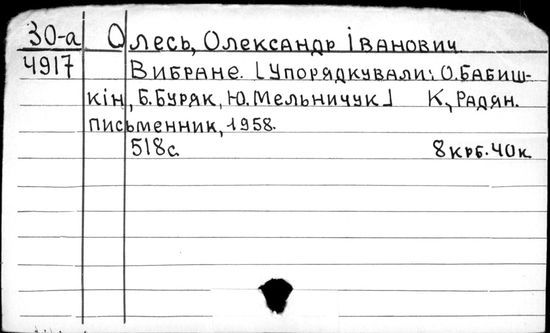 30-а Олесь, Олександр Іванович
4917 Вибране. [Упорядкували: О. Бабиш-
кін, Б. Буряк, Ю. Мельничук] К, Радян.
письменник, 1958.
518с. 8крб. 40к